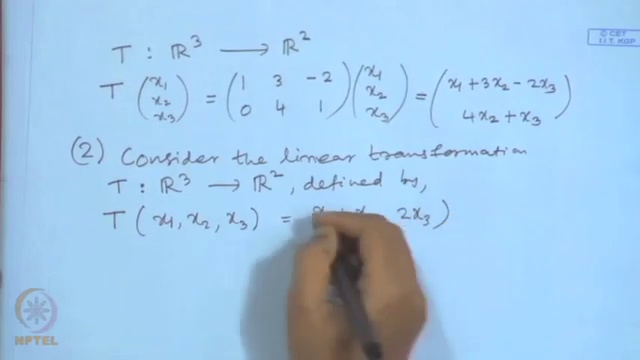 © CET
I.I.T. KGP
T : ℝ³ ⟶ ℝ²
T (x₁ x₂ x₃) = (1 3 -2 0 4 1) (x₁ x₂ x₃) = (x₁ + 3x₂ - 2x₃ 4x₂ + x₃)
(2) Consider the linear transformation
T : ℝ³ → ℝ², defined by,
T (x₁, x₂, x₃) = 2x₃)
NPTEL